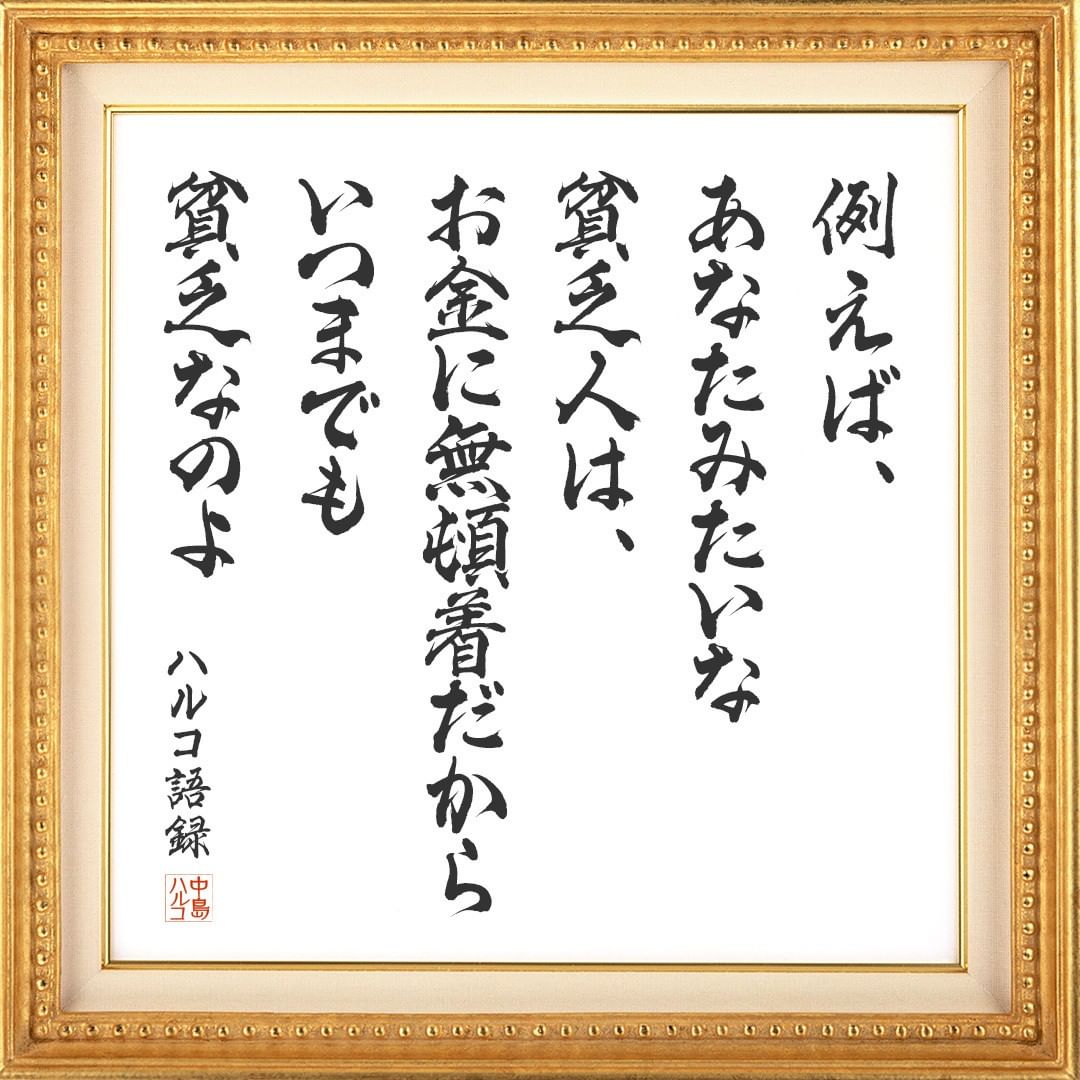 例えば、
あなたみたいな
貧乏人は、
お金に無頓着だから
いつまでも
貧乏なのよ
ハルコ語録
中島
ハルコ